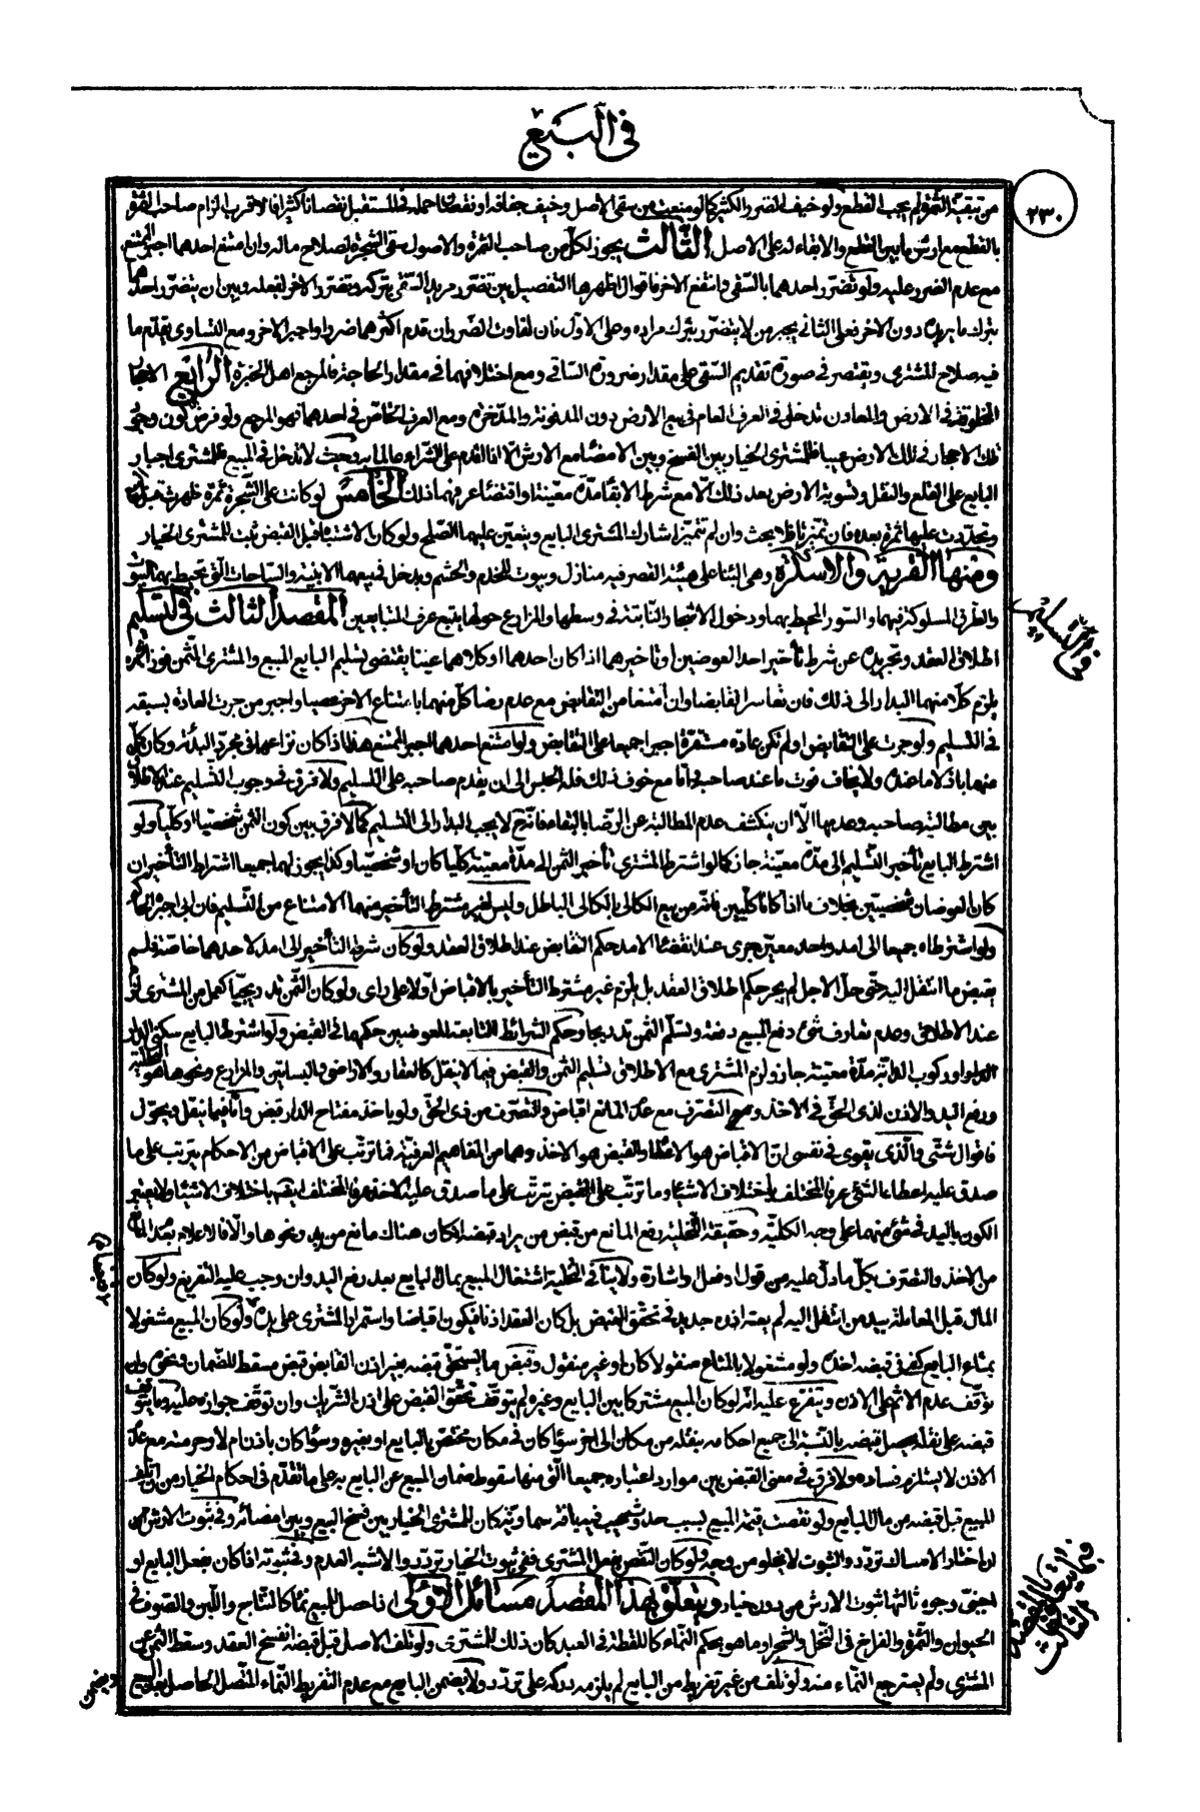 في البيع
٢٣٠
من تبقية الثمرة لم يجب القطع ولو خيف الضرر الكثير كما لو منعت من سقى الأصل وخيف جفافه او نقصان حمله في المستقبل نقصانا كثيرا فالاقرب الزام صاحب الثمرة
بالقطع مع ارش ما بين القطع والابقاء له على الاصل الثالث يجوز لكل من صاحب الثمرة والاصول سقى الشجرة لصلاح ماله وان امتنع احدهما اجبر الممتنع
مع عدم الضرر عليه ولو تضرر احدهما بالسقى وانتفع الاخر فاقوال اظهرها التفصيل بين تضرر مريد السقى بتركه وتضرر الاخر لفعله وبين ان يتضرر احدهما
بترك ما يريده دون الاخر فعلى الثانى يجبر من لا يتضرر بترك مراده وعلى الاول فان تفاوت الضرران قدم اكثرهما ضررا واجبر الاخر ومع التساوى يقدم ما
فيه صلاح المشترى ويقتصر في صورة تقديم السقى على مقدار ضرورة الساقى ومع اختلافهما في مقدار الحاجة فالمرجع اهل الخبرة الرابع الاحجار
المخلوقة في الارض والمعادن تدخل في العرف العام في بيع الارض دون المدفونة والمدخرة ومع العرف الخاص في احدهما فهو المرجع ولو فرض كون وجود
تلك الاحجار في تلك الارض عيبا فللمشترى الخيار بين الفسخ وبين الامضاء مع الارش الا اذا اقدم على الشراء عالما به وحيث لا تدخل في المبيع فللمشترى اجبار
البايع على القلع والنقل وتسوية الارض بعد ذلك الا مع شرط الابقاء مدة معينة او اقتضاء عرفهما ذلك الخامس لو كانت على الشجرة ثمرة ظهرت قبل البيع
وتجددت عليها ثمرة بعده فان تميزتا فلا بحث وان لم تتميزا شارك المشترى البايع ويتعين عليهما الصلح ولو كان الاشتباه قبل القبض ثبت للمشترى الخيار
ومنها القرية والدسكرة وهى البناء على هيئة القصر فيه منازل وبيوت للخدم والحشم ويدخل فيهما الابنية والساحات التى تحيط بها البيوت
والطرق المسلوكة فيهما والسور المحيط بهما ودخول الاشجار النابتة في وسطها والمزارع حولها يتبع عرف المتبايعين المقصد الثالث في التسليم
اطلاق العقد وتجريده عن شرط تأخير احد العوضين او تأخيرهما اذا كان احدهما او كلاهما عينا يقتضى تسليم البايع المبيع والمشترى الثمن فورا
يلزم كلا منهما البدار الى ذلك فان تعاسرا تقابضا وان امتنعا من التقابض مع عدم رضا كل منهما بامتناع الاخر عصيا واجبر من جرت العادة بسبقه
في التسليم ولو جرت على التقابض او لم تكن عادة مستقرة اجبرا جميعا على التقابض ولو امتنع احدهما اجبر الممتنع هذا اذا كان نزاعهما في مجرد البدئة وكان كل
منهما باذلا ما عنده ولا يخاف فوت ما عند صاحبه واما مع خوف ذلك فله الحبس الى ان يقدم صاحبه على التسليم ولا فرق في وجوب التسليم عند الاطلاق
بين مطالبة صاحبه وعدمها الا ان ينكشف عدم المطالبة عن الرضا بالبقاء فانه ح لا يجب البدار الى التسليم كما لا فرق بين كون الثمن شخصيا او كليا ولو
اشترط البايع تأخير التسليم الى مدة معينة جاز كما لو اشترط المشترى تأخير الثمن الى مدة معينة كليا كان او شخصيا وكذا يجوز لهما جميعا اشتراط التأخير ان
كان العوضان شخصيين بخلاف ما اذا كانا كليين فانه من بيع الكالى بالكالى الباطل وليس لغير مشترط التأخير منهما الامتناع من التسليم فان ابى اجبره الحاكم
ولو اشترطاه جميعا الى امد واحد معين جرى عند انقضاء الامد حكم التقابض عند اطلاق العقد ولو كان شرط التأخير الى امد لاحدهما خاصة فلم
يقبض ما انتقل اليه حتى حل الاجل لم يجر حكم اطلاق العقد بل يلزم غير مشترط التأخير بالاقباض اولا على راى ولو كان الثمن تدريجيا كعمل من المشترى لزم
عند الاطلاق وعدم تعارف شئ دفع المبيع دفعة وتسلم الثمن تدريجا وحكم الشرائط التابعة للعوضين حكمهما في القبض ولو اشترط البايع سكنى الدار
او ركوب الدابة مدة معينة جاز ولزم المشترى مع الاطلاق تسليم الثمن والقبض فيما لا ينقل كالعقار والاراضى والبساتين والمزارع ونحوها هو التخلية
ورفع اليد والاذن لذى الحق في الاخذ و التصرف مع عدم المانع اقباض والتصرف من ذى الحق ولو ياخذ مفتاح الدار قبض واما فيما ينقل ويحول
فاقوال شتى والذى يقوى في نفسى ان الاقباض هو الاعطاء والقبض هو الاخذ وهما من المفاهيم العرفية فما ترتب على الاقباض من الاحكام يترتب على ما
صدق عليه اعطاء الشئ عرفا المختلف باختلاف الاشياء وما ترتب على القبض يترتب على ما صدق عليه الاخذ عرفا المختلف ايضا باختلاف الاشياء ولا يعتبر
الكون باليد في شئ منهما على وجه الكلية وحقيقة التخلية رفع المانع من قبض من يراد قبضه ان كان هناك مانع من يد ونحوها والا فالاعلام بعدم المانع
من الاخذ والتصرف بكل ما دل عليه من قول او فعل او اشارة ولا ينافى التخلية اشتغال المبيع بمال البايع بعد رفع اليد وان وجب عليه التفريغ ولو كان
المال قبل المعاملة بيد من انتقل اليه لم يعتبر اذن جديد في تحقق القبض بل كان العقد اذنا فيكون اقباضا واستمرار المشترى على يده ولو كان المبيع مشغولا
بمتاع البايع كفى في قبضه اخذه ولو مشغولا بالمتاع منقولا كان او غير منقول وقبض ما يستحق قبضه بغير اذن القابض قبض مسقط للضمان ونحوه وان
توقف عدم الاثم على الاذن ويتفرع عليه انه لو كان المبيع مشتركا بين البايع وغيره لم يتوقف تحقق القبض على اذن الشريك وان توقف جوازه عليه وما يتوقف
قبضه على نقله يحصل قبضه بالنسبة الى جميع احكامه بنقله من مكان الى اخر سواء كان في مكان مختص بالبايع او بغيره وسواء كان باذن ام لا وحرمته مع عدم
الاذن لا يستلزم فساده ولا فرق في معنى القبض بين موارد اعتباره جميعا التى منها سقوط ضمان المبيع عن البايع به على ما تقدم في احكام الخيار من ان تلف
المبيع قبل قبضه من مال البايع ولو نقصت قيمة المبيع بسبب حدوث عيب فيه بافة سماوية كان للمشترى الخيار بين فسخ البيع وبين امضائه وفي ثبوت الارش
ان اختار الامساك تردد والثبوت لا يخلو من وجه ولو كان النقص بفعل المشترى ففى ثبوت الخيار تردد والاشبه العدم وفي ثبوته اذا كان بفعل البايع او
اجنبى وجوه ثالثها ثبوت الارش من دون خيار ويتعلق بهذا المقصد مسائل الاولى اذا حصل للمبيع نماء كالنتاج واللبن والصوف في
الحيوان والثمرة والفراخ في النخل والشجر او ما هو بحكم النماء كاللقطة في العبد كان ذلك للمشترى ولو تلف الاصل قبل قبضه انفسخ العقد وسقط الثمن عن
المشترى ولم يسترجع النماء منه ولو تلف من غير تفريط من البايع لم يلزمه دركه على تردد ولا يضمن البايع مع عدم التفريط النماء المتصل الحاصل
في التسليم
فيما يتعلق بالمقصد الثالث
ويضمن